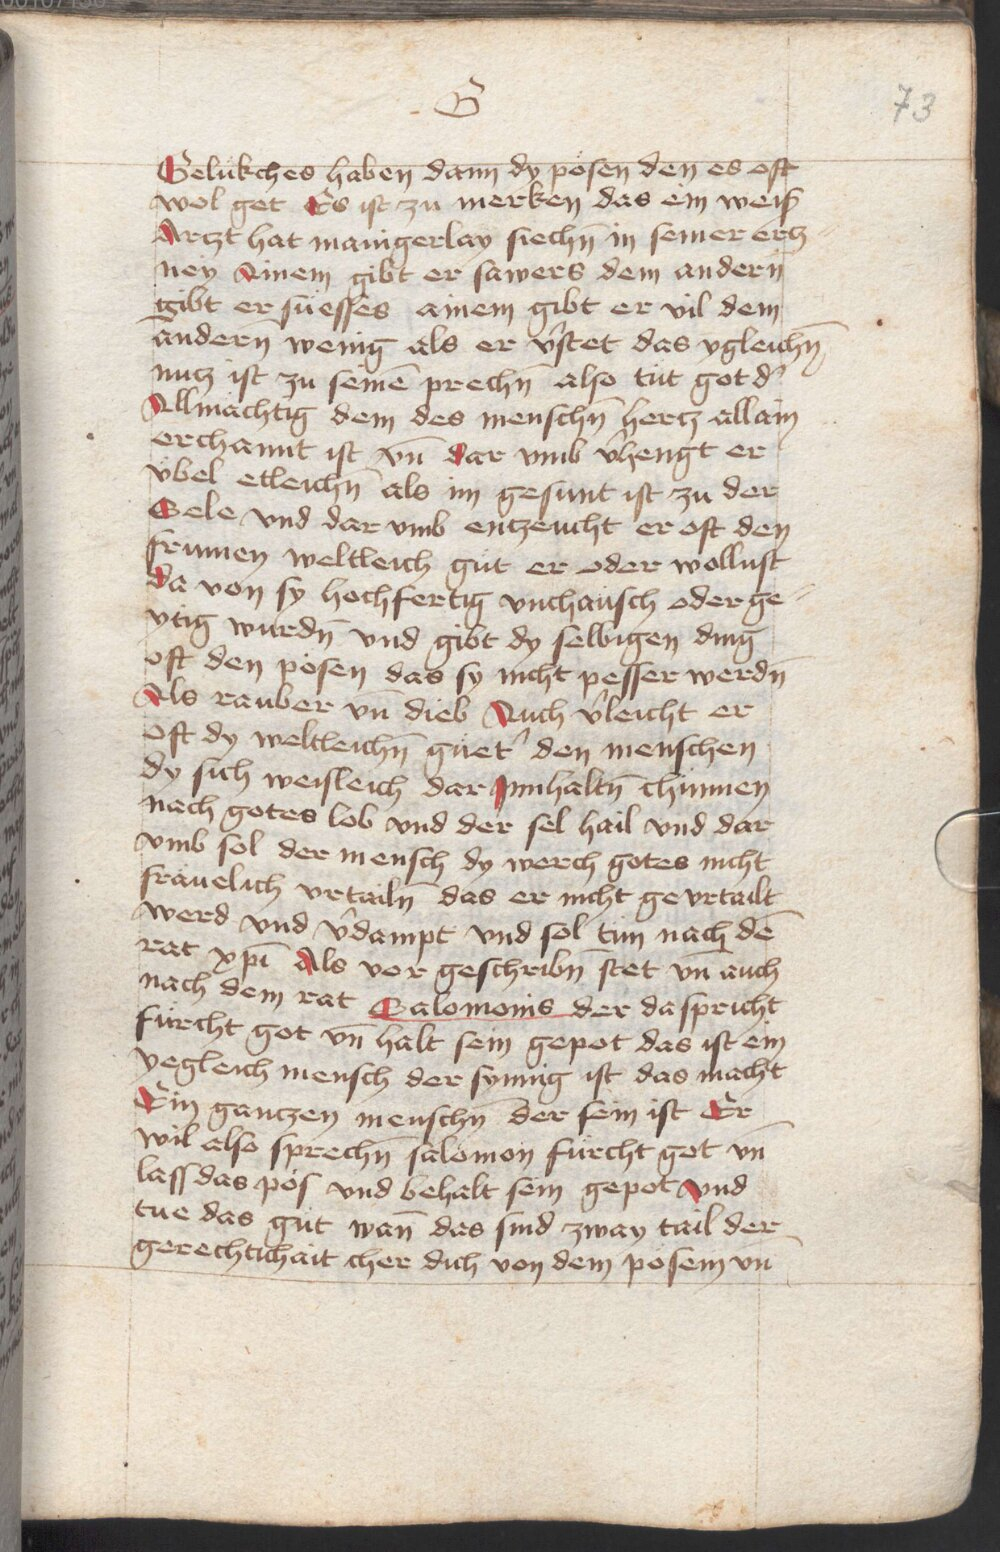 G
73
Gelükches haben dann dy pösen den es oft
wol get Es ist zu merken das ein weiß
Arczt hat manigerlay siechn̄ in seiner ercz
ney Ainem gibt er sawers dem andern
gibt er süesses ainem gibt er vil dem
andern̄ wenig als er v̉stet das ygleichn̄
nucz ist zu seinē prechn̄ also tüt got d̉
Allmächtig dem des menschn̄ hercz allain
erchannt ist vn̄ dar vmb v̉hengt er
vbel etleichn̄ als im gesunt ist zu der
Sele vnd dar vmb entzeucht er oft den
frumen weltleich güt er oder wollust
da von sy hochfertig vnchäusch oder ge
ytig wurdn̄ vnd gibt dy selbigen ding
oft den pösen das sy nicht pesser werdn̄
Als rauber vn̄ dieb Auch v̉leicht er
oft dy weltleichn̄ güet̉ den menschen
dy sich weisleich dar Inn haltn̄ chünnen
nach gotes lob vnd der sel hail vnd dar
vmb sol der mensch dy werch gotes nicht
fräuelich vrtailn̄ das er nicht gevrtailt
werd vnd v̉dampt vnd sol tün nach dē
rat xp̄i Als vor geschribn̄ stet vn̄ auch
nach dem rat Salomonis der da spricht
fürcht got vn̄ halt sein gepot das ist ein
yegleich mensch der synnig ist das macht
Ein ganczen menschn̄ der sein ist Er
wil also sprechn̄ salomon fürcht got vn̄
lass das pös vnd behalt sein gepot vnd
tue das güt wan̄ das sind zway tail der
gerechtichait cher dich von dem pösem vn̄